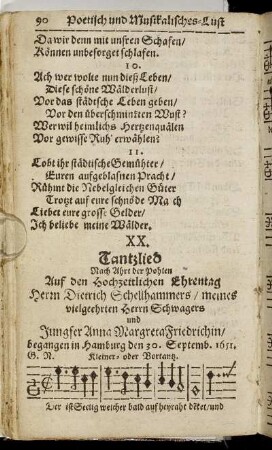 90 Poetisch und Musikalisches-Lust
Da wir denn mit unsren Schafen/
Können unbesorget schlafen.
10.
Ach wer wolte nun dieß Leben/
Diese schöne Wälderlust/
Vor das städtsche Leben geben/
Vor den überschminkten Wust?
Wer wil heimlichs Hertzenquälen
Vor gewisse Ruh' erwählen?
11.
Lobt ihr städtische Gemühter/
Euren aufgeblasnen Pracht/
Rühmt die Nebelgleichen Güter
Trotzt auf eure schnöde Ma ch
Liebet eure grosse Felder/
Ich beliebe meine Wälder.
XX.
Tantzlied
Nach Ahrt der Pohlen
Auf den Hochzeitlichen Ehrentag
Herrn Dietrich Schellhammers/ meines
vielgeehrten Herrn Schwagers
und
Jungfer Anna Margreta Friedrichin/
begangen in Hamburg den 30. Septemb. 1651.
G. N. Kleiner- oder Vortantz.
Der ist Seelig welcher bald auf heyraht dötet/und